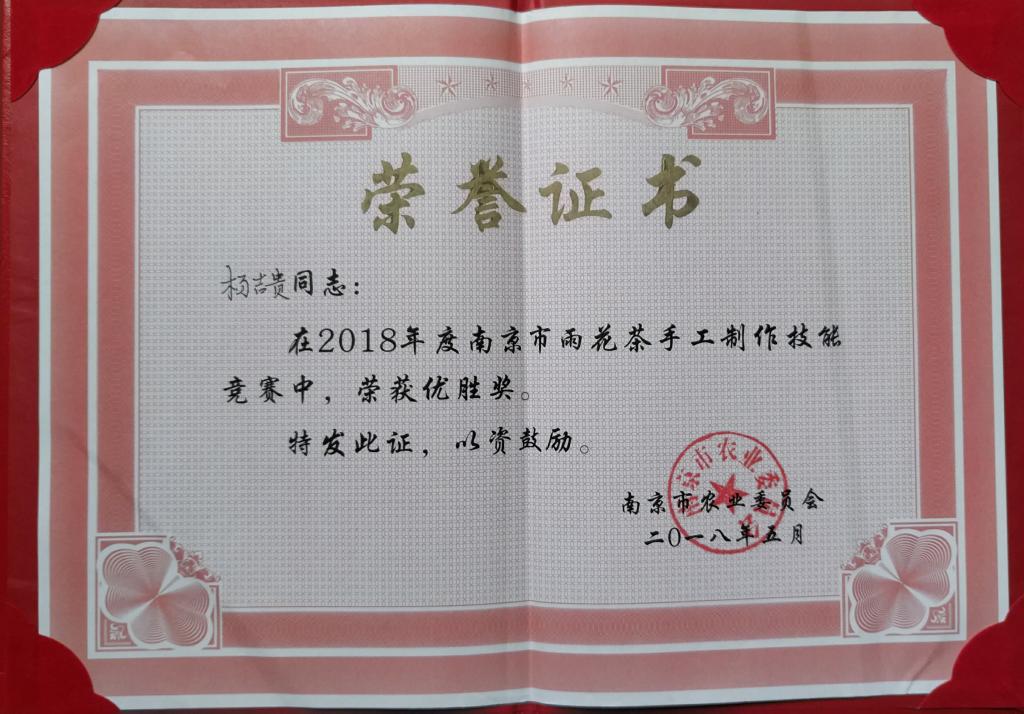 荣誉证书
杨吉贵同志：
在2018年度南京市雨花茶手工制作技能
竞赛中，荣获优胜奖。
特发此证，以资鼓励。
南京市农业委员会
南京市农业委员会
二〇一八年五月